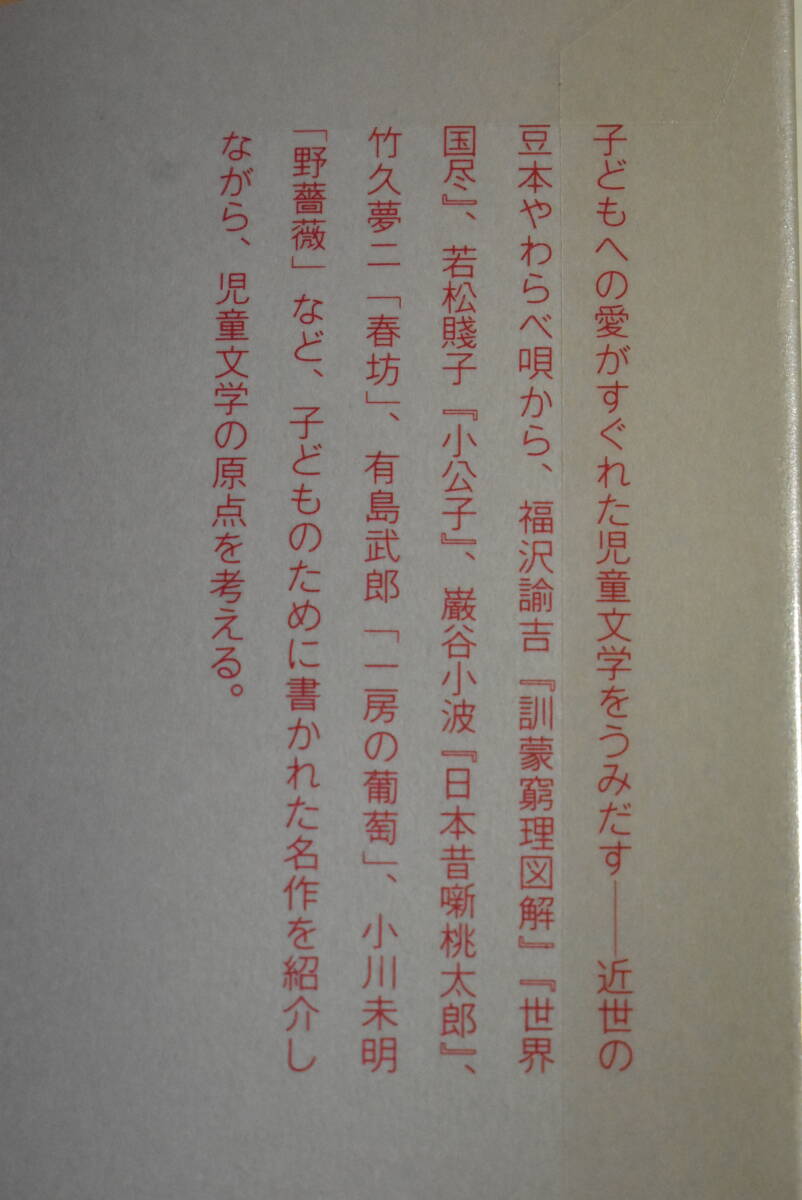 子どもへの愛がすぐれた児童文学をうみだす――近世の
豆本やわらべ唄から、福沢諭吉『訓蒙窮理図解』『世界
国尽』、若松賤子『小公子』、巌谷小波『日本昔噺桃太郎』、
竹久夢二「春坊」、有島武郎「一房の葡萄」、小川未明
「野薔薇」など、子どものために書かれた名作を紹介し
ながら、児童文学の原点を考える。